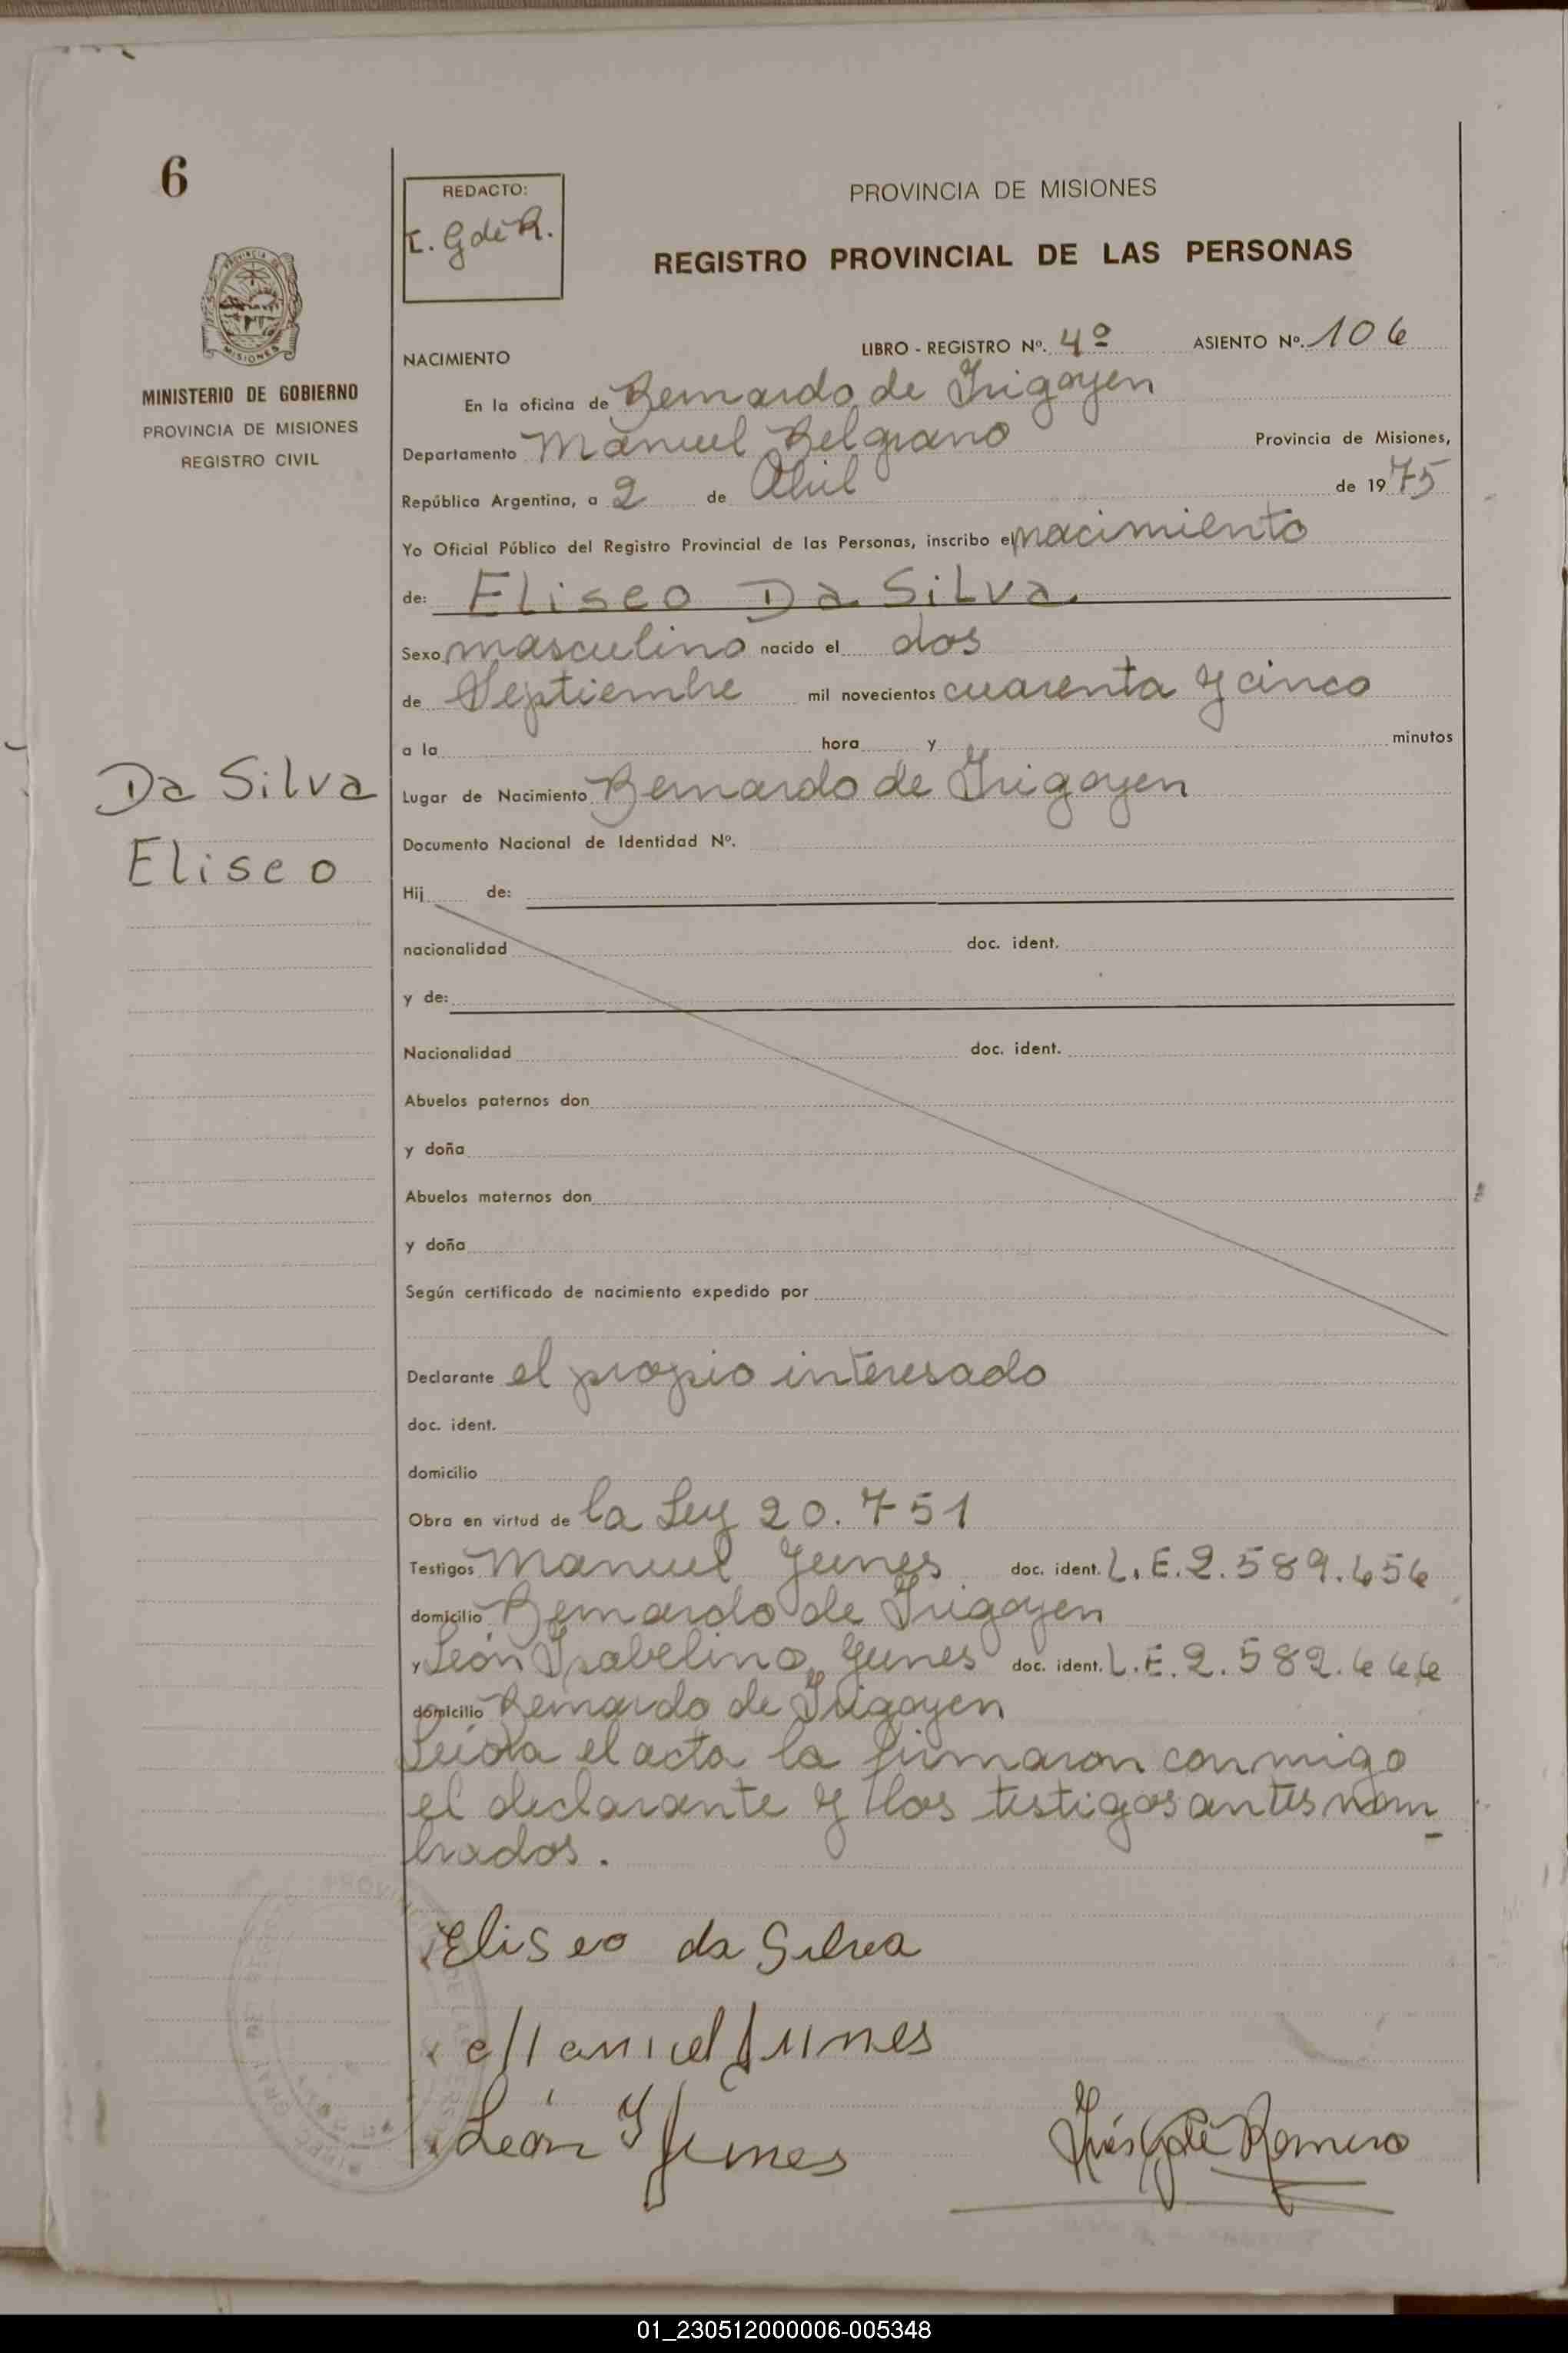 6
REDACTO:
I. G de R.
PROVINCIA DE MISIONES
REGISTRO PROVINCIAL DE LAS PERSONAS
MISIONES
MINISTERIO DE GOBIERNO
PROVINCIA DE MISIONES
REGISTRO CIVIL
NACIMIENTO
LIBRO - REGISTRO Nº. 4º ASIENTO Nº. 106
En la oficina de Bernardo de Irigoyen
Departamento Manuel Belgrano Provincia de Misiones,
República Argentina, a 2 de Abril de 1975
Yo Oficial Público del Registro Provincial de las Personas, inscribo el nacimiento
de: Eliseo Da Silva
Sexo masculino nacido el dos
de Septiembre mil novecientos cuarenta y cinco
a la hora y minutos
Da Silva
Eliseo
Lugar de Nacimiento Bernardo de Irigoyen
Documento Nacional de Identidad Nº.
Hij de:
nacionalidad doc. ident.
y de:
Nacionalidad doc. ident.
Abuelos paternos don
y doña
Abuelos maternos don
y doña
Según certificado de nacimiento expedido por
Declarante el propio interesado
doc. ident.
domicilio
Obra en virtud de la Ley 20.751
Testigos Manuel Junes doc. ident. L.E.2.589.656
domicilio Bernardo de Irigoyen
y León Isabelino Junes doc. ident. L.E.2.582.666
domicilio Bernardo de Irigoyen
Leída el acta la firmaron conmigo
el declarante y los testigos antes nom
brados.
Eliseo da Silva
Manuel Junes
León Y Junes
Inés G de Romero
01_230512000006-005348